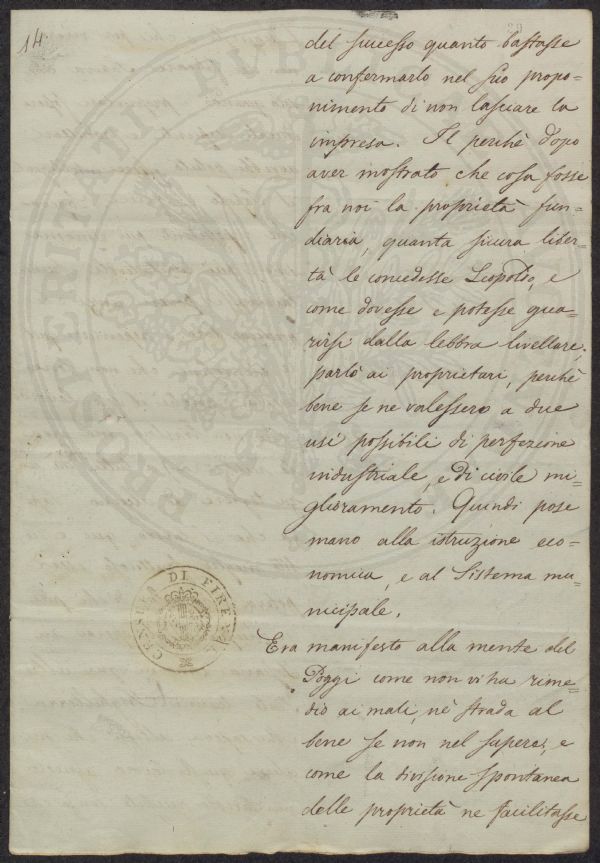 14.
del successo quanto bastasse
a confermarlo nel suo propo=
nimento di non lasciare la
impresa. Il perchè dopo
aver mostrato che cosa fosse
fra noi la proprietà fun=
diaria, quanta sicura liber=
tà le concedesse Leopoldo, e
come dovesse e potesse gua=
rirsi dalla lebbra livellare,
parlò ai proprietari, perchè
bene se ne valessero a due
usi possibili di perfezione
industriale, e di civile mi=
glioramento. Quindi pose
mano alla istruzione eco=
nomica, e al Sistema mu=
nicipale.
CENSURA DI FIRENZE
Era manifesto alla mente del
Poggi come non vi ha rime=
dio ai mali, nè strada al
bene se non nel sapere, e
come la divisione spontanea
delle proprietà ne facilitasse